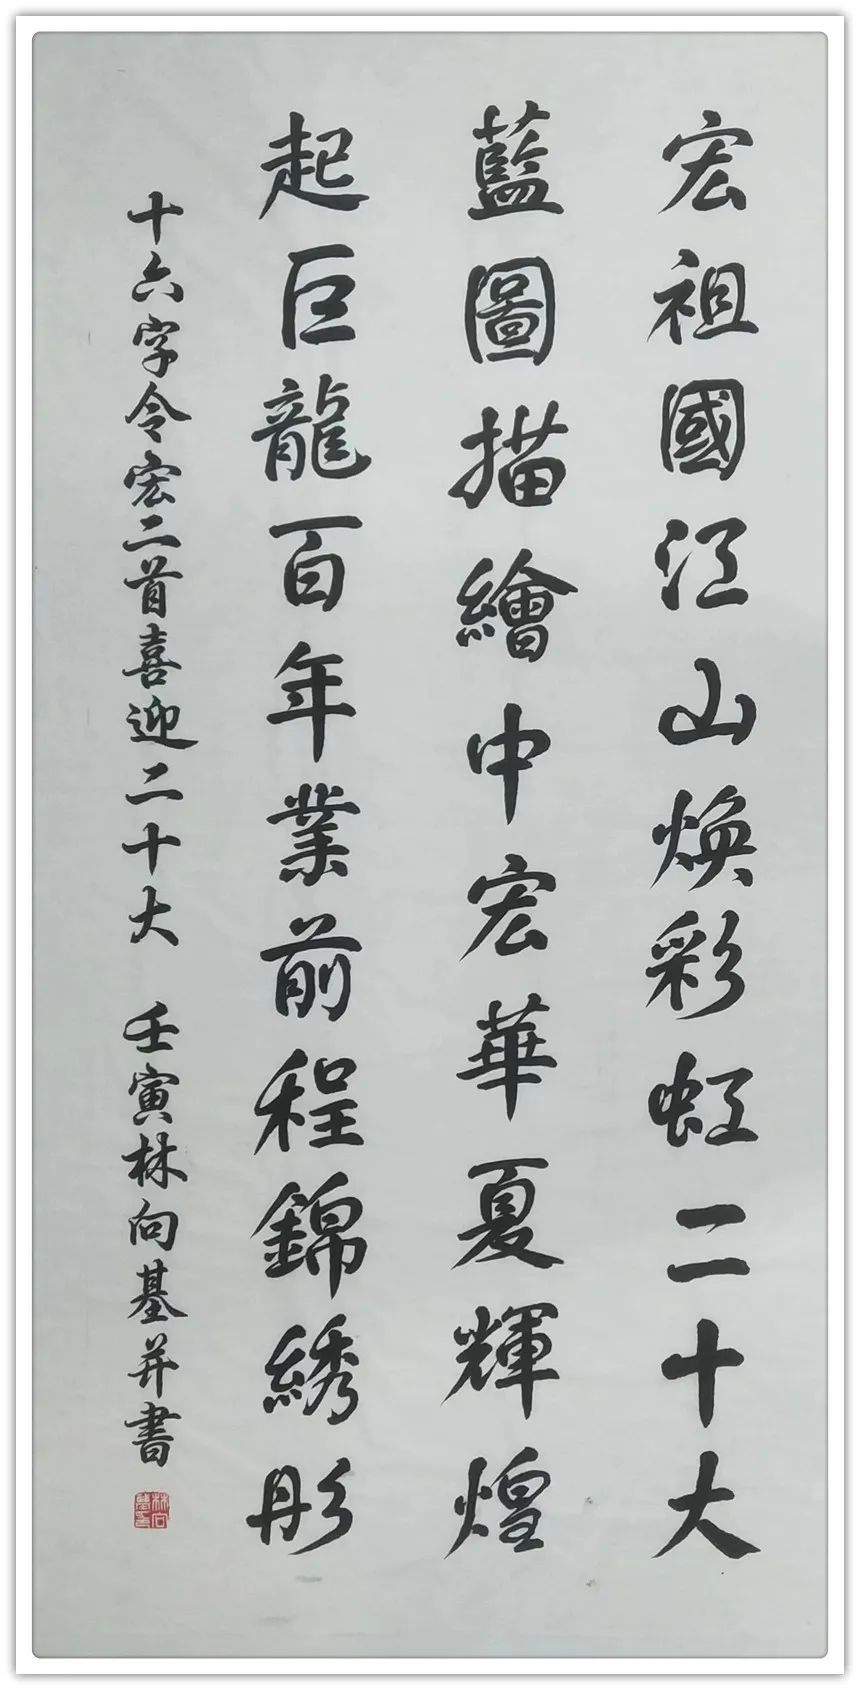 宏祖國江山煥彩虹二十大
藍圖描繪中宏華夏輝煌
起巨龍百年業前程錦綉彤
十六字令宏二首喜迎二十大 壬寅林向基并書